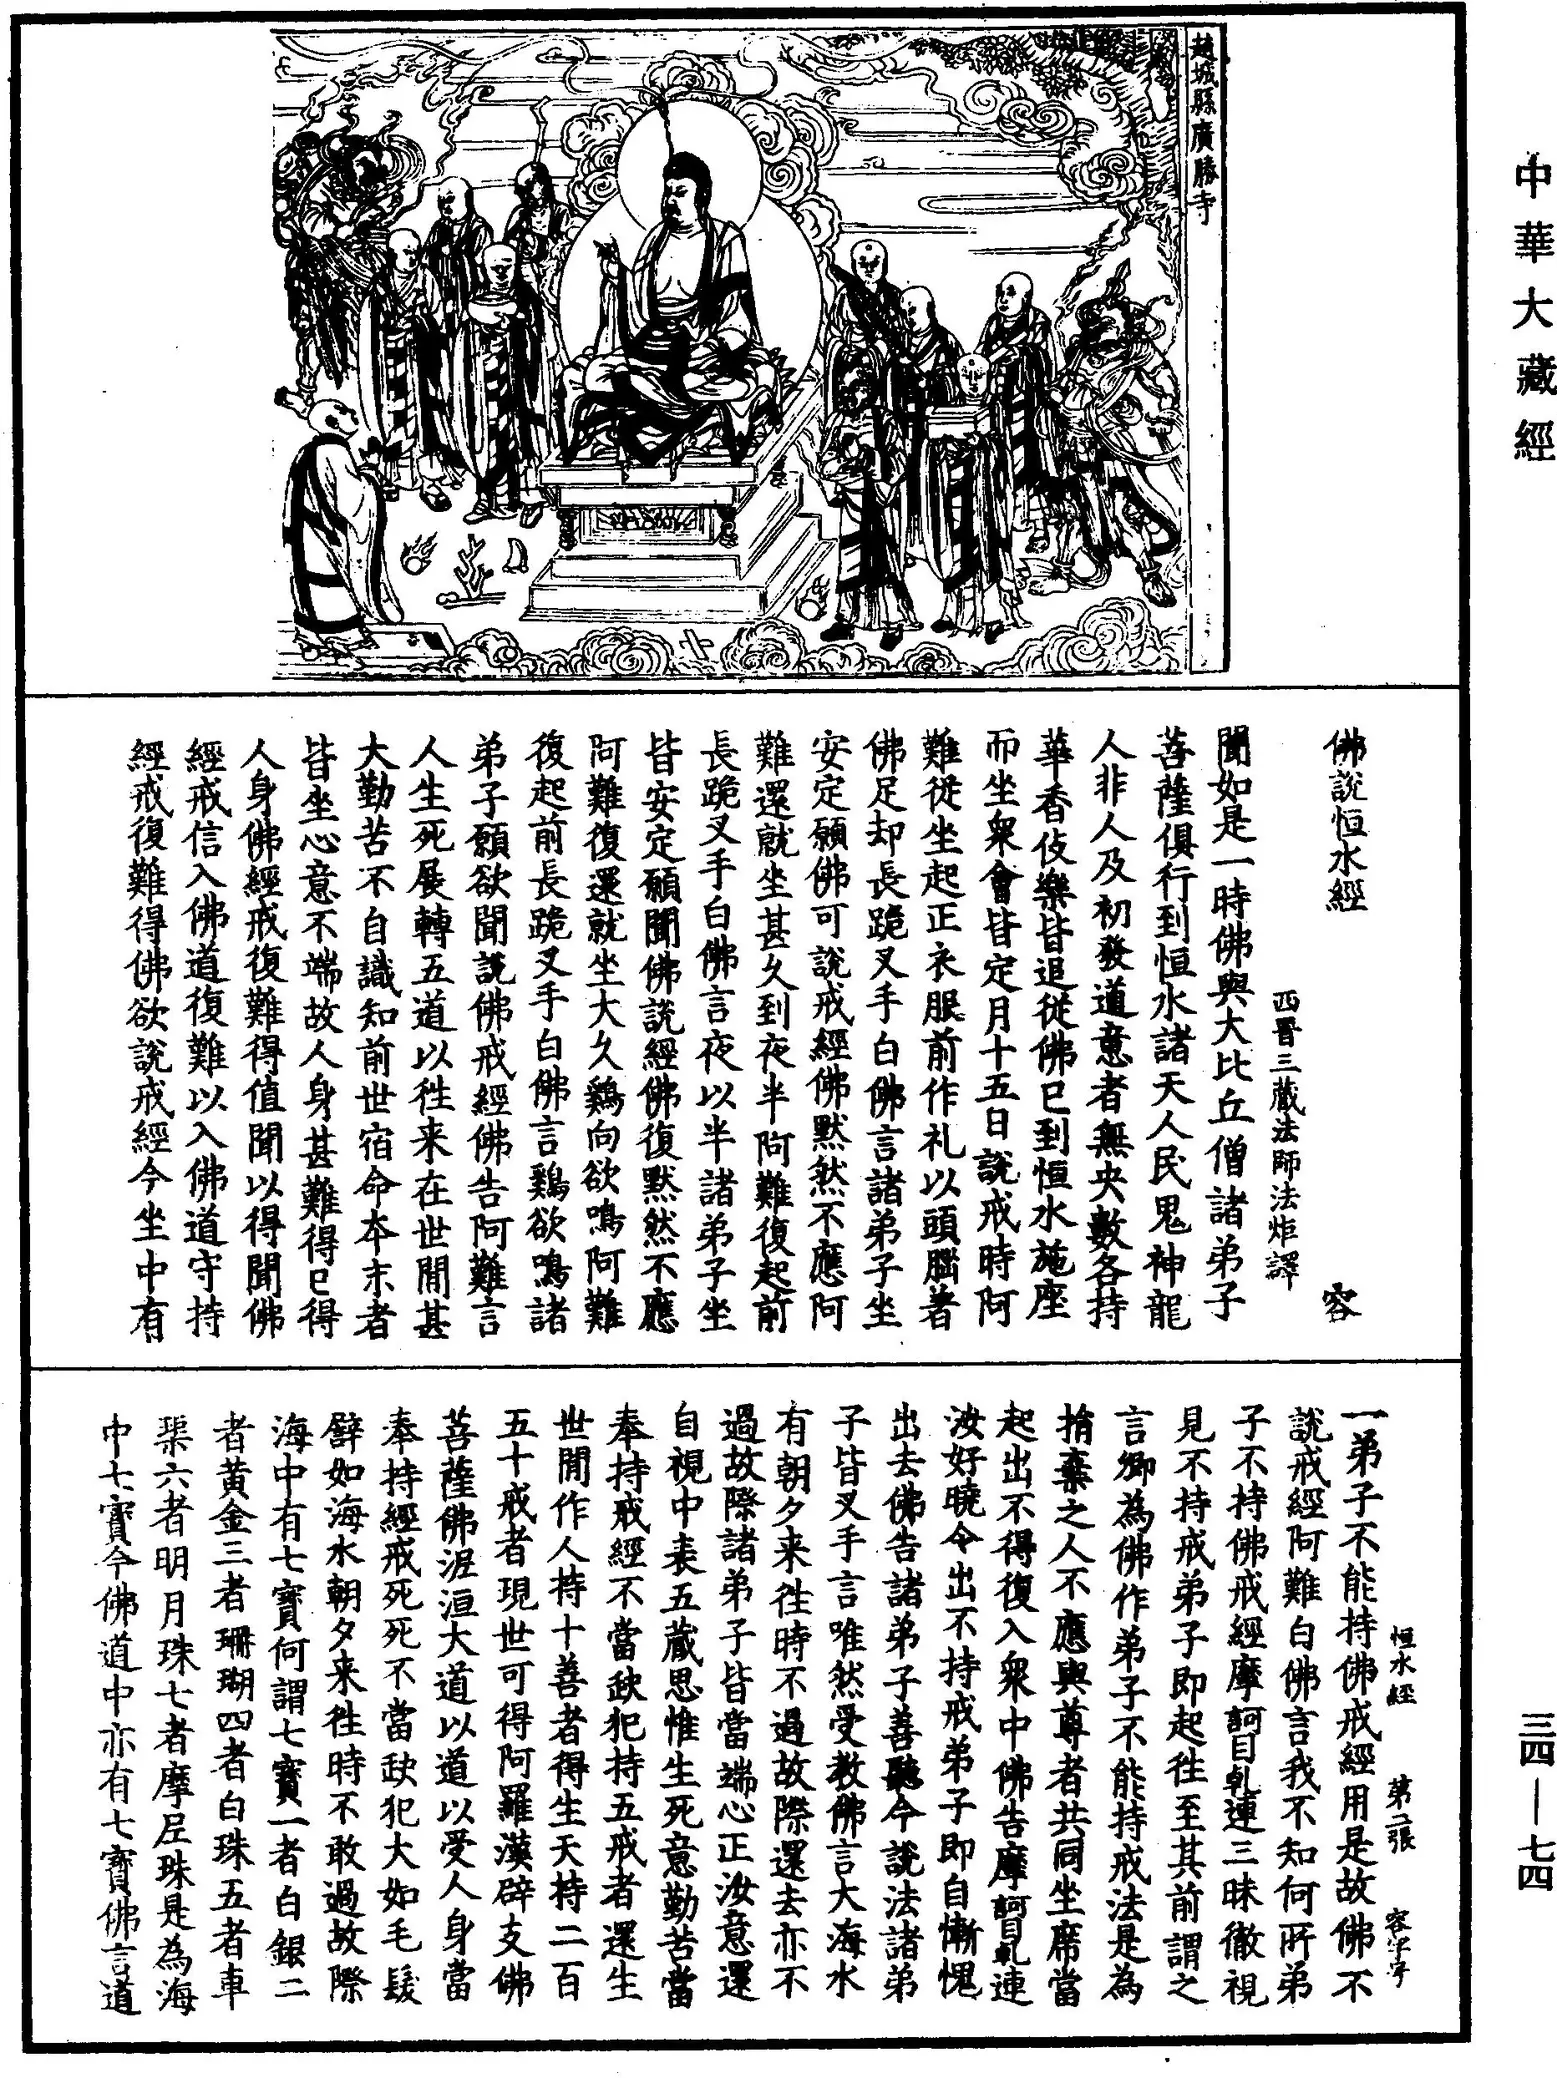 中華大藏經
趙城縣廣勝寺
佛說恒水經 容
西晉三藏法師法炬譯
聞如是一時佛與大比丘僧諸弟子
菩薩俱行到恒水諸天人民鬼神龍
人非人及初發道意者無央數各持
華香伎樂皆追從佛已到恒水施座
而坐衆會皆定月十五日說戒時阿
難從坐起正衣服前作礼以頭腦著
佛足却長跪叉手白佛言諸弟子坐
安定願佛可說戒經佛默然不應阿
難還就坐甚久到夜半阿難復起前
長跪叉手白佛言夜以半諸弟子坐
皆安定願聞佛說經佛復默然不應
阿難復還就坐大久鷄向欲鳴阿難
復起前長跪叉手白佛言鷄欲鳴諸
弟子願欲聞說佛戒經佛告阿難言
人生死展轉五道以徃来在世間甚
大勤苦不自識知前世宿命夲末者
皆坐心意不端故人身甚難得已得
人身佛經戒復難得值聞以得聞佛
經戒信入佛道復難以入佛道守持
經戒復難得佛欲說戒經今坐中有
恒水經 第二張 容字号
一弟子不能持佛戒經用是故佛不
說戒經阿難白佛言我不知何所弟
子不持佛戒經摩訶目乹連三昧徹視
見不持戒弟子即起徃至其前謂之
言卿為佛作弟子不能持戒法是為
捐棄之人不應與尊者共同坐席當
起出不得復入衆中佛告摩訶目乹連
汝好曉令出不持戒弟子即自慚愧
出去佛告諸弟子善聽今說法諸弟
子皆叉手言唯然受教佛言大海水
有朝夕来徃時不過故際還去亦不
過故際諸弟子皆當端心正汝意還
自視中表五藏思惟生死意勤苦當
奉持戒經不當缺犯持五戒者還生
世間作人持十善者得生天持二百
五十戒者現世可得阿羅漢辟支佛
菩薩佛泥洹大道以道以受人身當
奉持經戒死死不當缺犯大如毛髮
譬如海水朝夕来徃時不敢過故際
海中有七寶何謂七寶一者白銀二
者黄金三者珊瑚四者白珠五者車
𤦲六者明月珠七者摩尼珠是為海
中七寶今佛道中亦有七寶佛言道
三四—七四